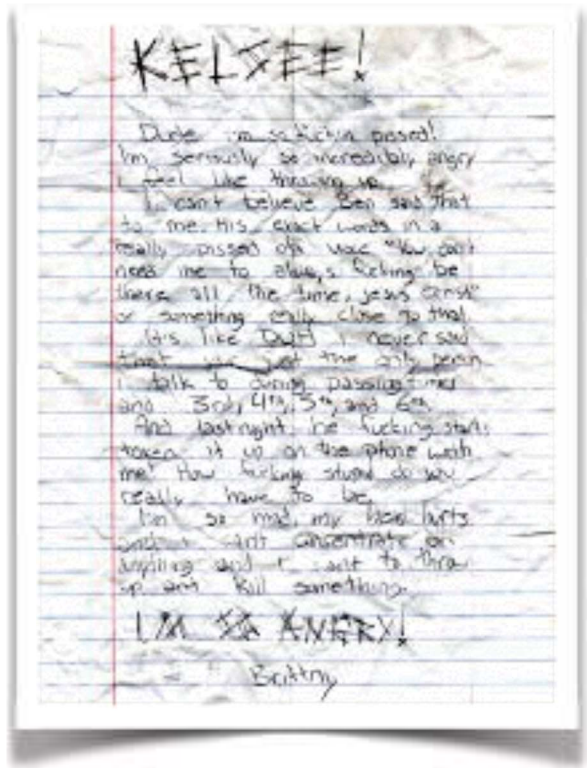 KELSEE!
Dude im so fuckin pissed!
I'm seriously so incredibly angry
i feel like throwing up.
I can't believe Ben said that
to me. His exact words in a
really pissed off voice "You don't
need me to always fucking be
there all the time, jesus christ"
or something really close to that
It's like DUH! I never said
that just the only person
i talk to during passing times
and 3rd, 4th, 5th, and 6th.
And last night he fucking starts
it up on the phone with
me! How fucking stupid do you
really have to be.
I'm so mad, my head hurts
and i can't concentrate on
anything and I want to throw
up and kill something.
I'M SO ANGRY!
Brittny